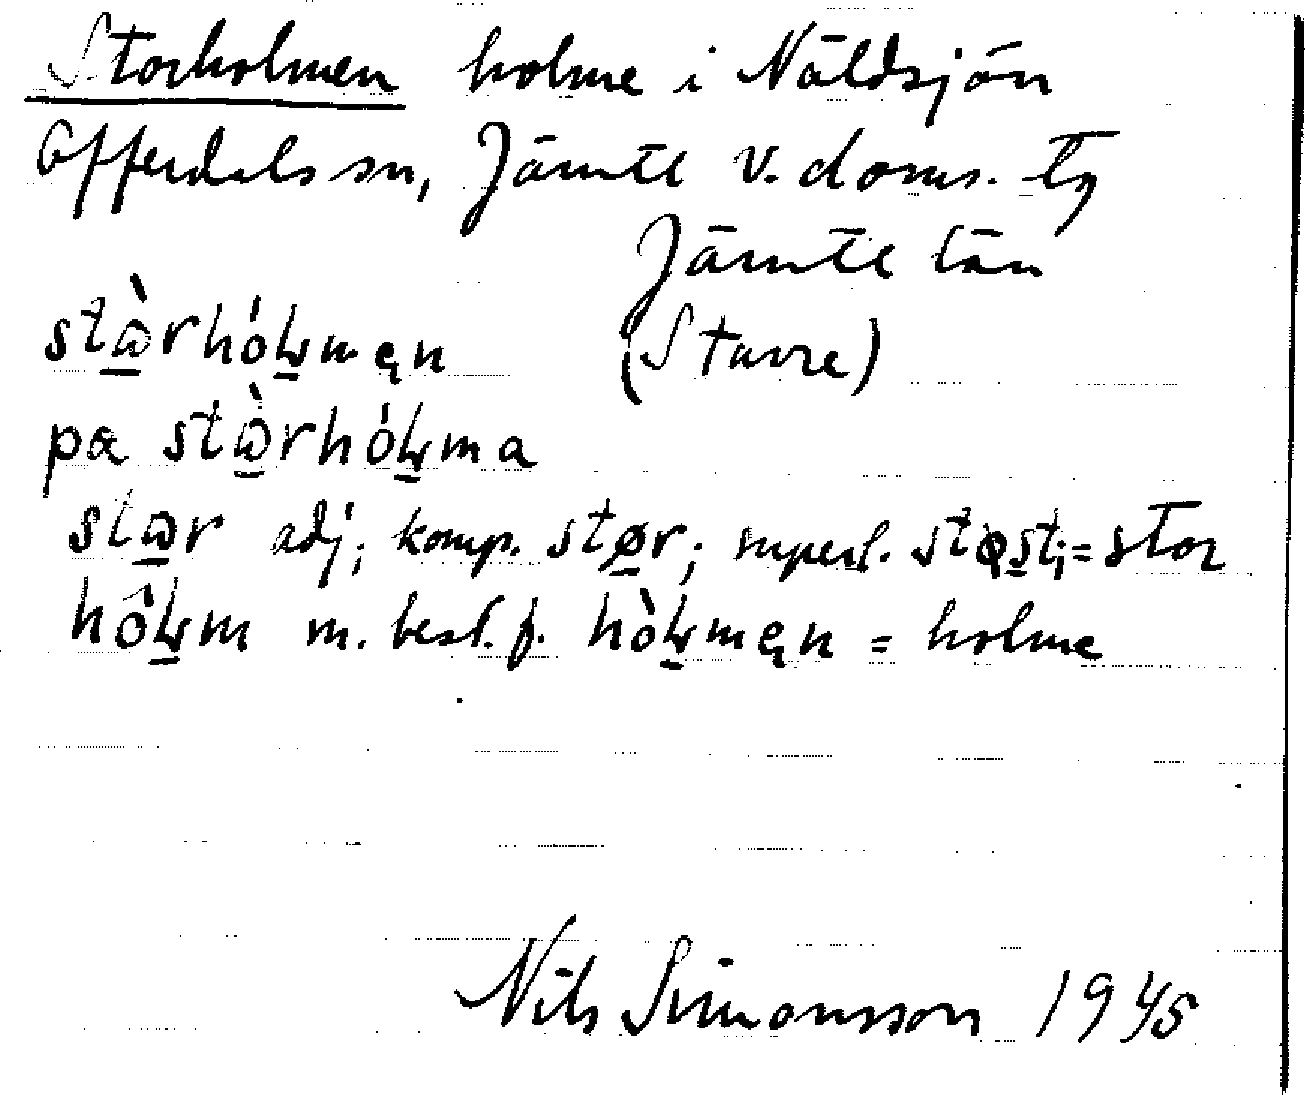 Storholmen holme i Näldsjön
Offerdals sn, Jämtl v. doms. tg
Jämtl län
stὼ̲rhól̲men (Stavre)
pα stὼ̲rhól̲ma
stω̲r adj, komp. stø̲r; superl. støs̲ti = stor
hôl̲m m. best. f. hòl̲men = holme
Nils Simonsson 1945